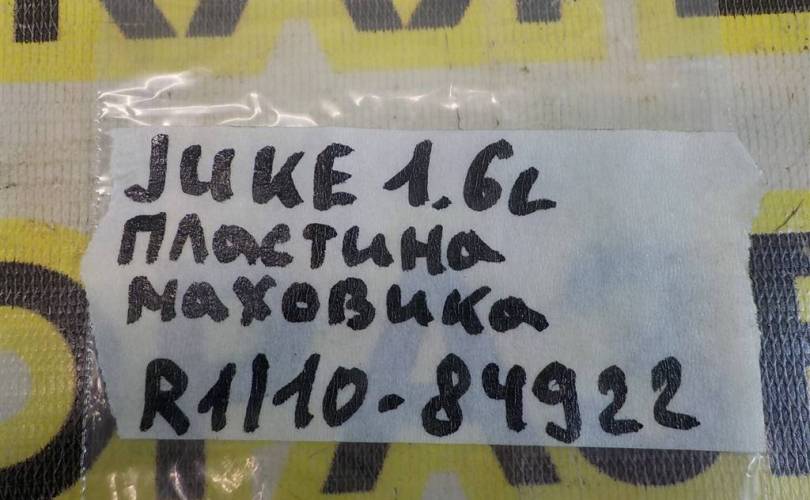 JUKE 1.6L
ПЛАСТИНА
МАХОВИКА
R1/10-84922